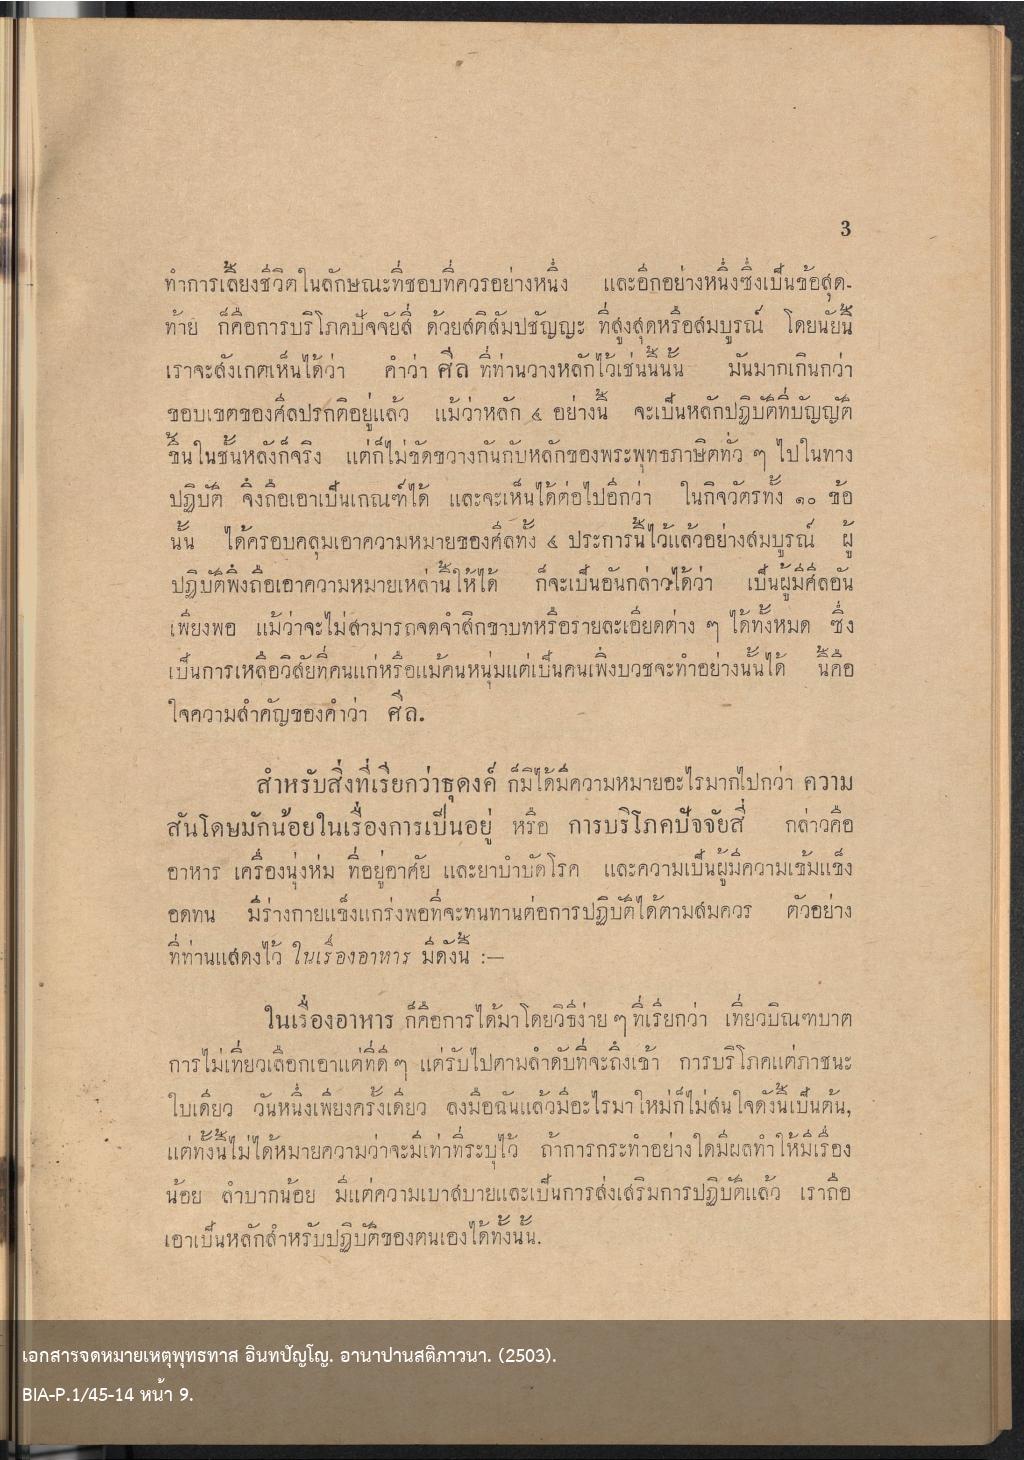 3
ทำการเลี้ยงชีวิตในลักษณะที่ชอบที่ควรอย่างหนึ่ง และอีกอย่างหนึ่งซึ่งเป็นข้อสุด-
ท้าย ก็คือการบริโภคปัจจัยสี่ ด้วยสติสัมปชัญญะ ที่สูงสุดหรือสมบูรณ์ โดยนัยนี้
เราจะสังเกตเห็นได้ว่า คำว่า ศีล ที่ท่านวางหลักไว้เช่นนี้นั้น มันมากเกินกว่า
ขอบเขตของศีลปรกติอยู่แล้ว แม้ว่าหลัก ๔ อย่างนี้ จะเป็นหลักปฏิบัติที่บัญญัติ
ขึ้นในชั้นหลังก็จริง แต่ก็ไม่ขัดขวางกันกับหลักของพระพุทธภาษิตทั่ว ๆ ไปในทาง
ปฏิบัติ จึงถือเอาเป็นเกณฑ์ได้ และจะเห็นได้ต่อไปอีกว่า ในกิจวัตรทั้ง ๑๐ ข้อ
นั้น ได้ครอบคลุมเอาความหมายของศีลทั้ง ๔ ประการนี้ไว้แล้วอย่างสมบูรณ์ ผู้
ปฏิบัติพึงถือเอาความหมายเหล่านี้ให้ได้ ก็จะเป็นอันกล่าวได้ว่า เป็นผู้มีศีลอัน
เพียงพอ แม้ว่าจะไม่สามารถจดจำสิกขาบทหรือรายละเอียดต่าง ๆ ได้ทั้งหมด ซึ่ง
เป็นการเหลือวิสัยที่คนแก่หรือแม้คนหนุ่มแต่เป็นคนเพิ่งบวชจะทำอย่างนั้นได้ นี้คือ
ใจความสำคัญของคำว่า ศีล.
สำหรับสิ่งที่เรียกว่าธุดงค์ ก็มิได้มีความหมายอะไรมากไปกว่า ความ
สันโดษมักน้อยในเรื่องการเป็นอยู่ หรือ การบริโภคปัจจัยสี่ กล่าวคือ
อาหาร เครื่องนุ่งห่ม ที่อยู่อาศัย และยาบำบัดโรค และความเป็นผู้มีความเข้มแข็ง
อดทน มีร่างกายแข็งแกร่งพอที่จะทนทานต่อการปฏิบัติได้ตามสมควร ตัวอย่าง
ที่ท่านแสดงไว้ ในเรื่องอาหาร มีดังนี้ :—
ในเรื่องอาหาร ก็คือการได้มาโดยวิธีง่าย ๆ ที่เรียกว่า เที่ยวบิณฑบาต
การไม่เที่ยวเลือกเอาแต่ที่ดี ๆ แต่รับไปตามลำดับที่จะถึงเข้า การบริโภคแต่ภาชนะ
ใบเดียว วันหนึ่งเพียงครั้งเดียว ลงมือฉันแล้วมีอะไรมาใหม่ก็ไม่สนใจดังนี้เป็นต้น,
แต่ทั้งนี้ไม่ได้หมายความว่าจะมีเท่าที่ระบุไว้ ถ้าการกระทำอย่างใดมีผลทำให้มีเรื่อง
น้อย ลำบากน้อย มีแต่ความเบาสบายและเป็นการส่งเสริมการปฏิบัติแล้ว เราถือ
เอาเป็นหลักสำหรับปฏิบัติของตนเองได้ทั้งนั้น.
เอกสารจดหมายเหตุพุทธทาส อินทปัญโญ. อานาปานสติภาวนา. (2503).
BIA-P.1/45-14 หน้า 9.